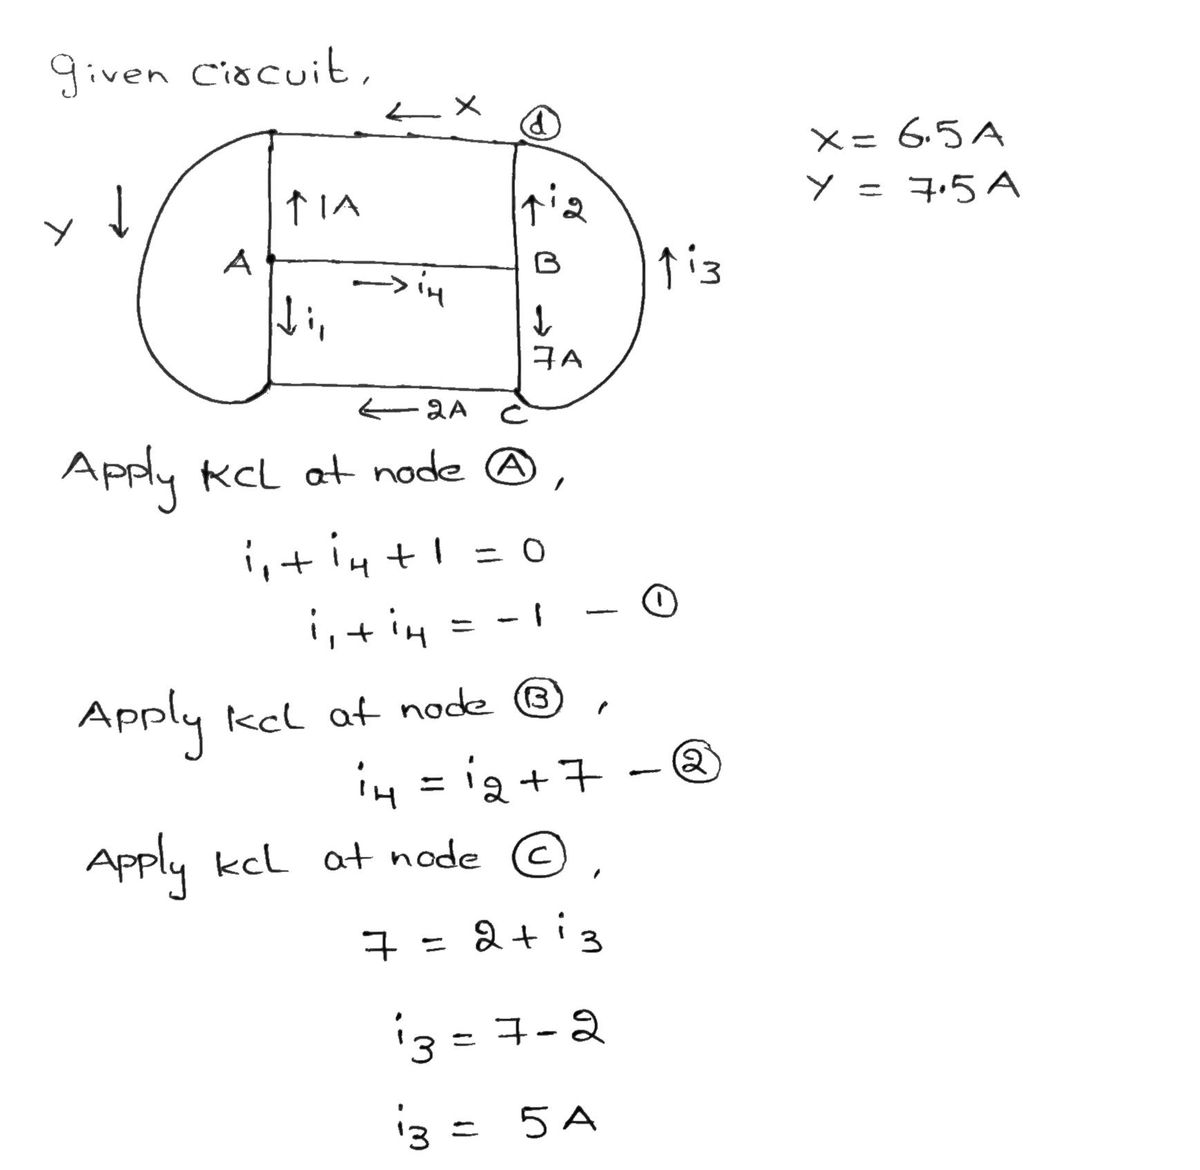 given circuit,
← X
d
X = 6.5 A
Y = 7.5 A
Y ↓
↑ 1A
↑ i2
A
B
↑ i3
→ i4
↓ i1
↓
7A
← 2A
C
Apply KCL at node A,
i1 + i4 + 1 = 0
i1 + i4 = -1 - 1
Apply KCL at node B,
i4 = i2 + 7 - 2
Apply KCL at node C,
7 = 2 + i3
i3 = 7 - 2
i3 = 5 A